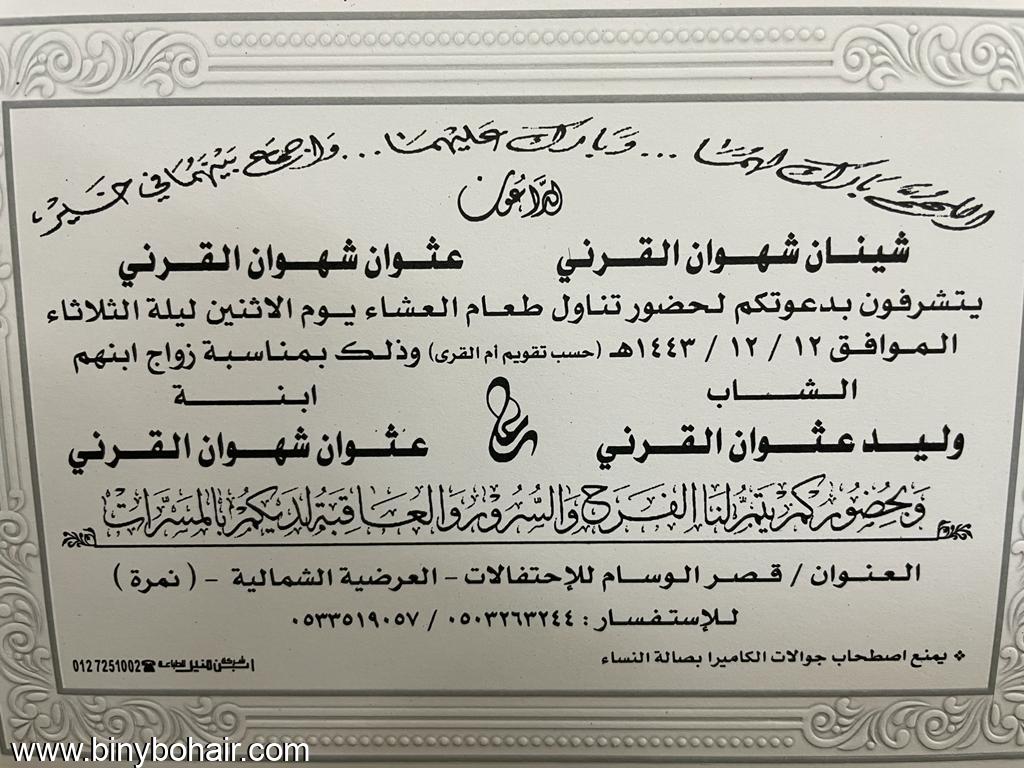 اللهم بارك لهما ... وبارك عليهما ... واجمع بينهما في خير
الداعون
شينان شهوان القرني عثوان شهوان القرني
يتشرفون بدعوتكم لحضور تناول طعام العشاء يوم الاثنين ليلة الثلاثاء
الموافق ١٢ / ١٢ / ١٤٤٣هـ (حسب تقويم أم القرى) وذلك بمناسبة زواج ابنهم
الشاب ابنة
وليد عثوان القرني على عثوان شهوان القرني
وبحضوركم يتم لنا الفرح والسرور والعاقبة لديكم بالمسرات
العنوان / قصر الوسام للإحتفالات - العرضية الشمالية - ( نمرة )
للإستفسار : ٠٥٠٣٢٦٣٢٤٤ / ٠٥٣٣٥١٩٠٥٧
❖ يمنع اصطحاب جوالات الكاميرا بصالة النساء
شركة للطباعة ☎ 012 7251002
www.binybohair.com